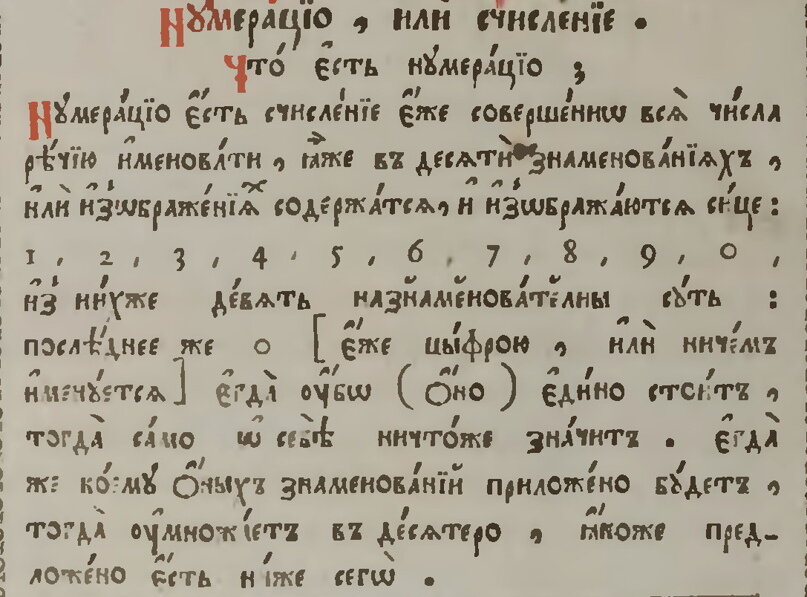 Нꙋмера́цїо , и҆лѝ счисле́нїе .
Что́ є҆́сть нꙋмера́цїо ;
Нꙋмера́цїо є҆́сть счисле́нїе є҆́же соверше́ннѡ всѧ̀ чи́сла
рѣ́чїю и҆менова́ти , ꙗ҆̀же въ десѧтѝ знаменова́нїѧхъ ,
и҆лѝ и҆з̾ѡбраже́нїѧхъ содержа́тсѧ , и҆ и҆з̾ѡбража́ютсѧ си́це :
1 , 2 , 3 , 4 , 5 , 6 , 7 , 8 , 9 , 0 ,
и҆з̾ ни́хже де́вѧть наз̾наменова́телны сꙋ́ть :
послѣ́днее же 0 [ є҆́же цы́фрою , и҆лѝ ниче́мъ
и҆менꙋ́етсѧ ] є҆гда̀ ᲂу҆́бѡ ( ѻ҆́но ) є҆ди́но стои́тъ ,
тогда̀ са́мо ѡ҆ себѣ̀ ничто́же зна́читъ . є҆гда̀
же ко́емꙋ̀ ѻ҆́ныхъ знаменова́нїй приложе́но бꙋ́детъ ,
тогда̀ ᲂу҆мно́жіетъ въ де́сѧтеро , ꙗ҆́коже пред-
ложе́но є҆́сть ни́же сегѡ̀ .